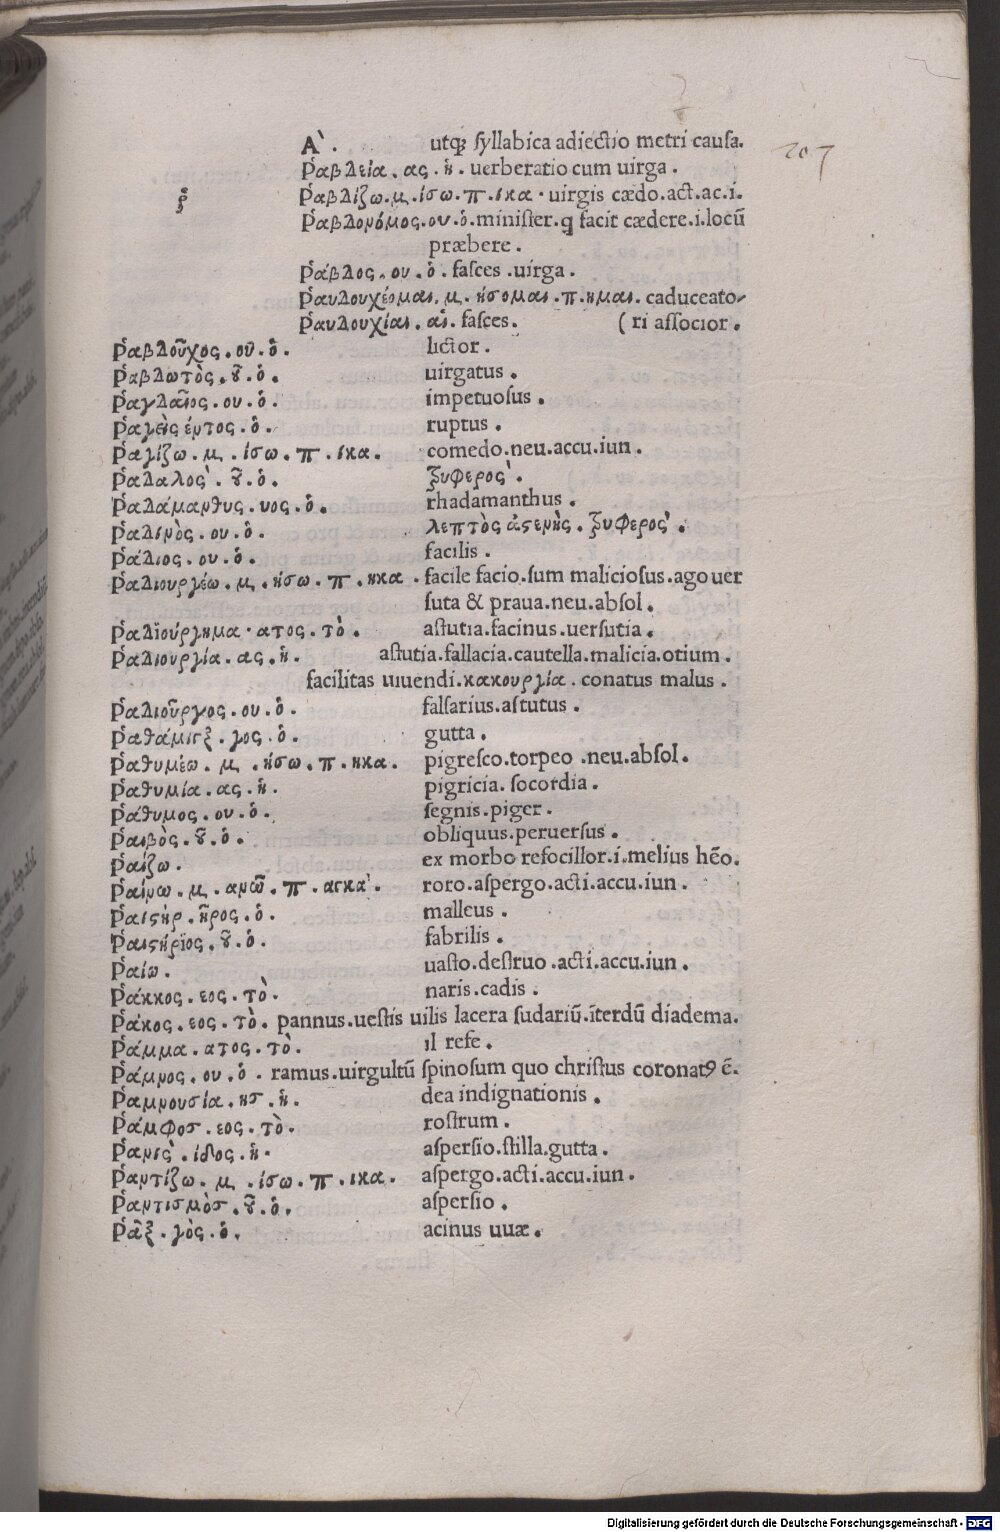 207
Ἂ. utqꝫ ſyllabica adiectio metri cauſa.
Ῥαβδεία. ας. ἡ. uerberatio cum uirga.
ῥ
Ῥαβδίζω. μ. ίσω. π. ικα. uirgis cædo. act. ac. i.
Ῥαβδονόμος. ου. ὁ. miniſter. q facit cædere. i. locū
præbere.
Ῥάβδος. ου. ὁ. faſces. uirga.
Ῥαυδουχέομαι. μ. ήσομαι. π. ημαι. caduceato-
Ῥαυδουχίαι. αἱ. faſces. (ri aſſocior.
Ῥαβδοῦχος. ου. ὁ. lictor.
Ῥαβδωτὸς. οῦ. ὁ. uirgatus.
Ῥαγδαῖος. ου. ὁ. impetuoſus.
Ῥαγεὶς έντος. ὁ. ruptus.
Ῥαγίζω. μ. ίσω. π. ικα. comedo. neu. accu. iun.
Ῥαδαλος̀. οῦ. ὁ. τρυφερος̀.
Ῥαδάμανθυς. υος. ὁ. rhadamanthus.
Ῥαδινὸς. ου. ὁ. λεπτὸς ἀσενὴς. τρυφερος̀.
Ῥάδιος. ου. ὁ. facilis.
Ῥαδιουργέω. μ. ήσω. π. ηκα. facile facio. ſum malicioſus. ago uer
ſuta & praua. neu. abſol.
Ῥαδϊούργημα. ατος. τὸ. aſtutia. facinus. uerſutia.
Ῥαδιουργία. ας. ἡ. aſtutia. fallacia. cautella. malicia. otium.
facilitas uiuendi. κακουργία. conatus malus.
Ῥαδιοῦργος. ου. ὁ. falſarius. aſtutus.
Ῥαθάμιγξ. γος. ὁ. gutta.
Ῥαθυμέω. μ. ήσω. π. ηκα. pigreſco. torpeo. neu. abſol.
Ῥαθυμία. ας. ἡ. pigricia. ſocordia.
Ῥάθυμος. ου. ὁ. ſegnis. piger.
Ῥαιβὸς. οῦ. ὁ. obliquus. peruerſus.
Ῥαίζω. ex morbo refocillor. i. melius hēo.
Ῥαίνω. μ. ανῶ. π. αγκὰ. roro. aſpergo. acti. accu. iun.
Ῥαιστήρ. ῆρος. ὁ. malleus.
Ῥαιστήρϊος. οῦ. ὁ. fabrilis.
Ῥαίω. uaſto. deſtruo. acti. accu. iun.
Ῥάκκος. εος. τὸ. naris. cadis.
Ῥάκος. εος. τὸ. pannus. ueſtis uilis lacera ſudariū. īterdū diadema.
Ῥάμμα. ατος. τὸ. il refe.
Ῥάμνος. ου. ὁ. ramus. uirgultū ſpinoſum quo chriſtus coronatꝰ ē.
Ῥαμνουσία. ησ. ἡ. dea indignationis.
Ῥάμφοσ. εος. τὸ. roſtrum.
Ῥανις̀. ίδος. ἡ. aſperſio. ſtilla. gutta.
Ῥαντίζω. μ. ίσω. π. ικα. aſpergo. acti. accu. iun.
Ῥαντισμὸσ. οῦ. ὁ. aſperſio.
Ῥᾶξ. γὸς. ὁ. acinus uuæ.
Digitalisierung gefördert durch die Deutsche Forschungsgemeinschaft - DFG